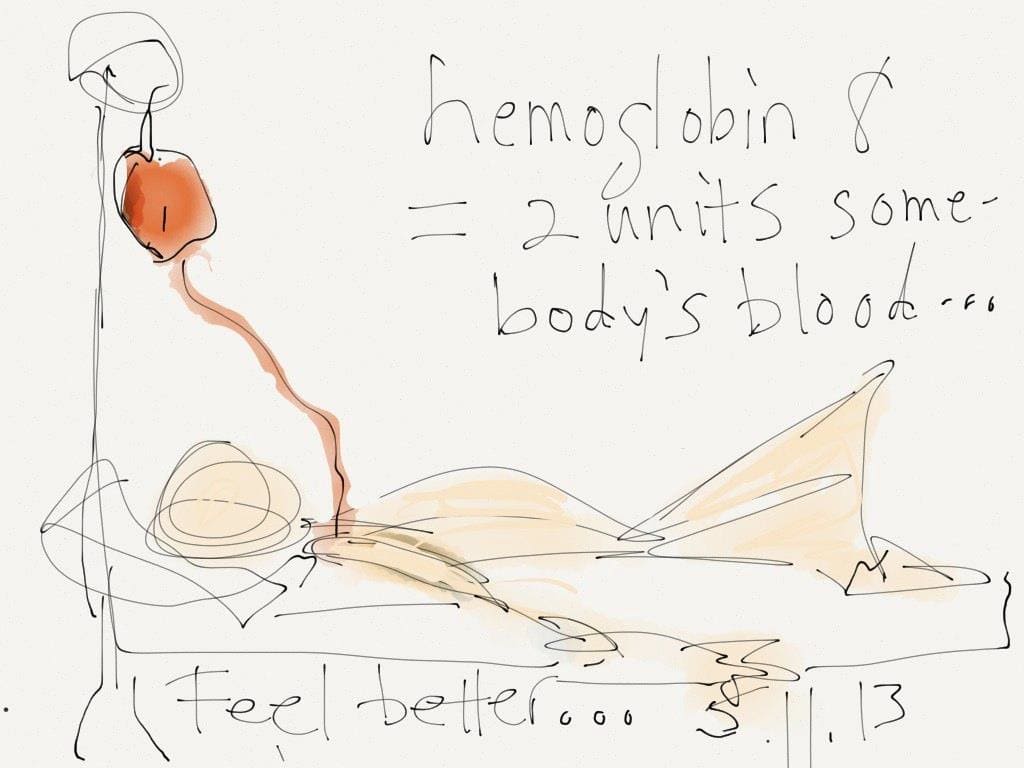 hemoglobin 8
= 2 units some-
body's blood....
Feel better... 5.11.13